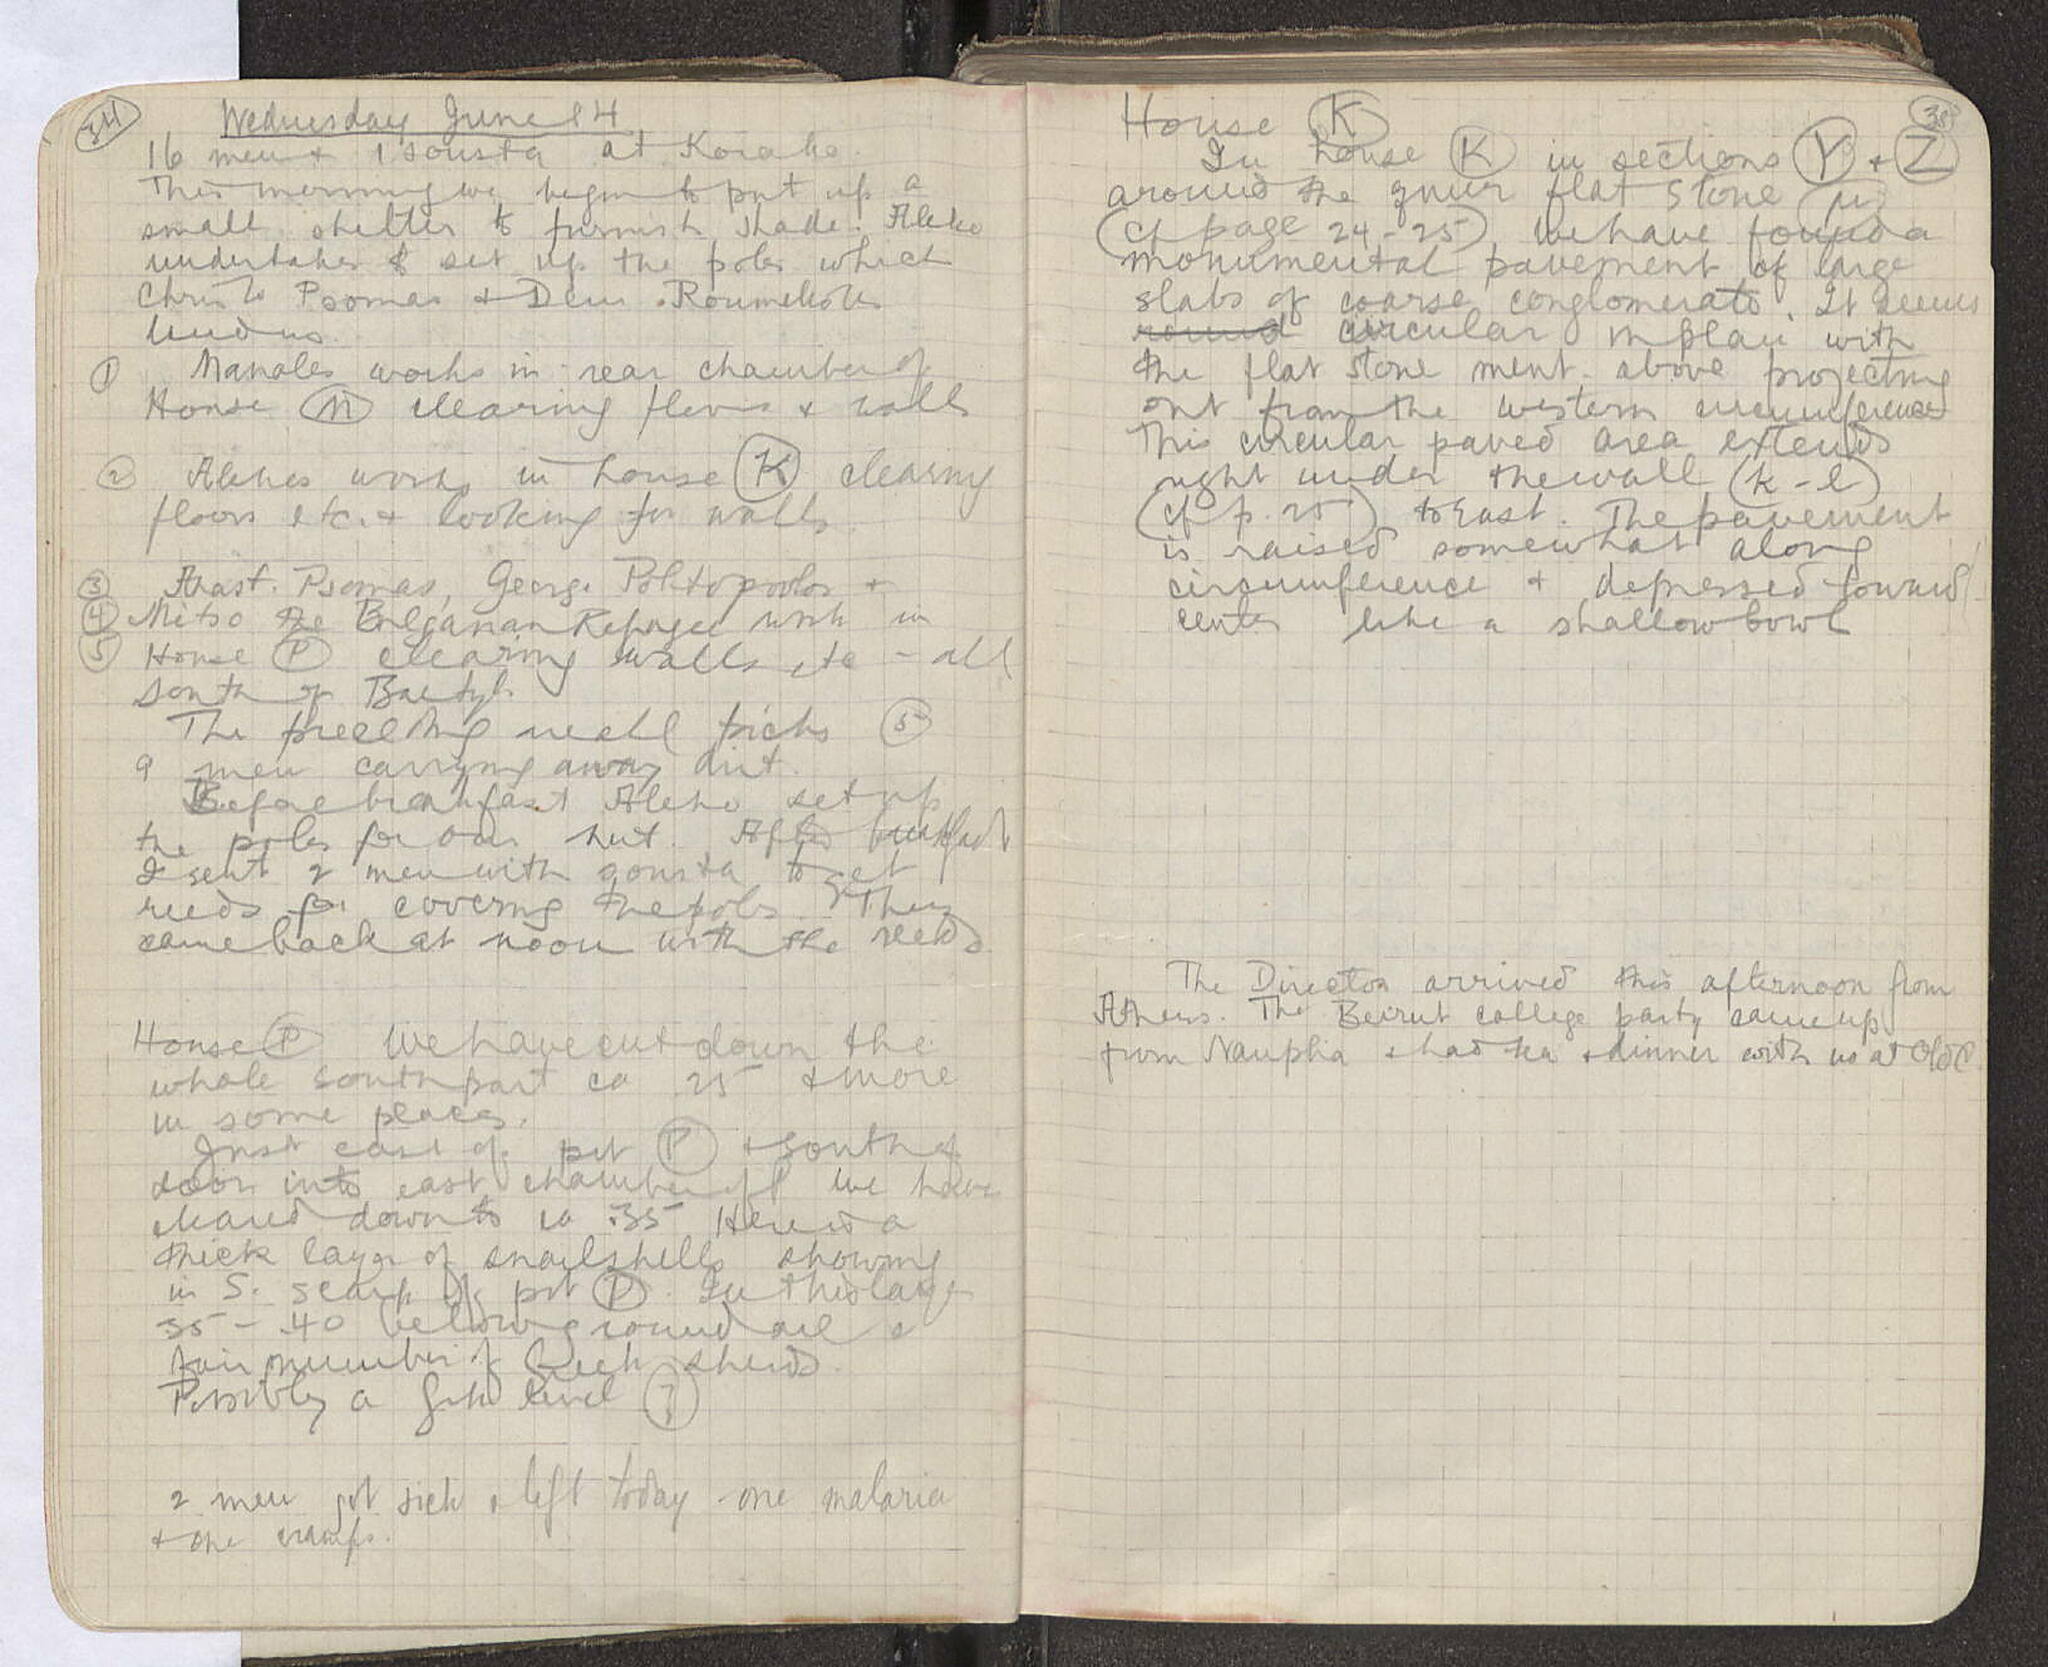 34
Wednesday June 14
16 men + 1 sousta at Korako.
This morning we begin to put up a
small shelter to furnish shade. Aleko
undertakes to set up the poles which
Christo Psomas + Dem. Roumeliotes
lend us.
1 Manoles works in rear chamber of
House M clearing floors + walls
2 Alekos works in house K clearing
floors etc. + looking for walls.
3 Anast. Psomas, George Politopoulos +
4 Mitso the Bulgarian Refugee work in
5 House P clearing walls etc - all
south of Baetyl.
The preceding small picks 5
9 men carrying away dirt.
Before breakfast Aleko set up
the poles for our hut. After breakfast
I sent 2 men with sousta to get
reeds for covering the poles. They
came back at noon with the reeds.
House P We have cut down the
whole south part ca 25 + more
in some places.
Just east of pit P + south of
door into east chamber of we have
cleared down to ca .35 Here is a
thick layer of snailshells showing
in S. scarp of pit P. In this layer
35 - .40 below ground are a
fair number of Greek sherds.
Possibly a Grk level ?
2 men got sick + left today - one malaria
+ one cramps.
35
House K
In house K in sections Y + Z
around the queer flat stone
(cf page 24-25), we have found a
monumental pavement of large
slabs of coarse conglomerate. It seems
round circular in plan with
the flat stone ment. above projecting
out from the western circumference
This circular paved area extends
right under the wall (k-l)
(cf p. 25) to East. The pavement
is raised somewhat along
circumference + depressed toward
center like a shallow bowl
The Director arrived this afternoon from
Athens. The Beirut college party came up
from Nauplia + had tea + dinner with us at Old C.